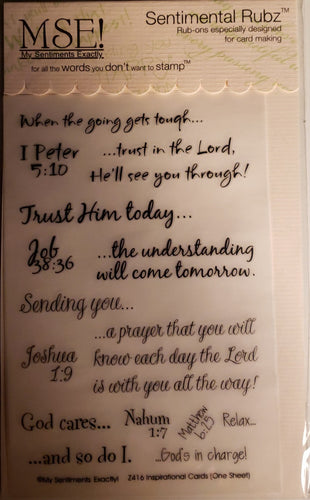 MSE!
My Sentiments Exactly
Sentimental Rubz™
Rub-ons especially designed
for card making
for all the words you don't want to stamp™
When the going gets tough...
I Peter
5:10
...trust in the Lord,
He'll see you through!
Trust Him today...
Job
38:36
...the understanding
will come tomorrow.
Sending you...
...a prayer that you will
Joshua
1:9
know each day the Lord
is with you all the way!
God cares...
Nahum
1:7
Matthew
6:25
Relax...
...and so do I.
...God's in charge!
©My Sentiments Exactly! Z416 Inspirational Cards (One Sheet)